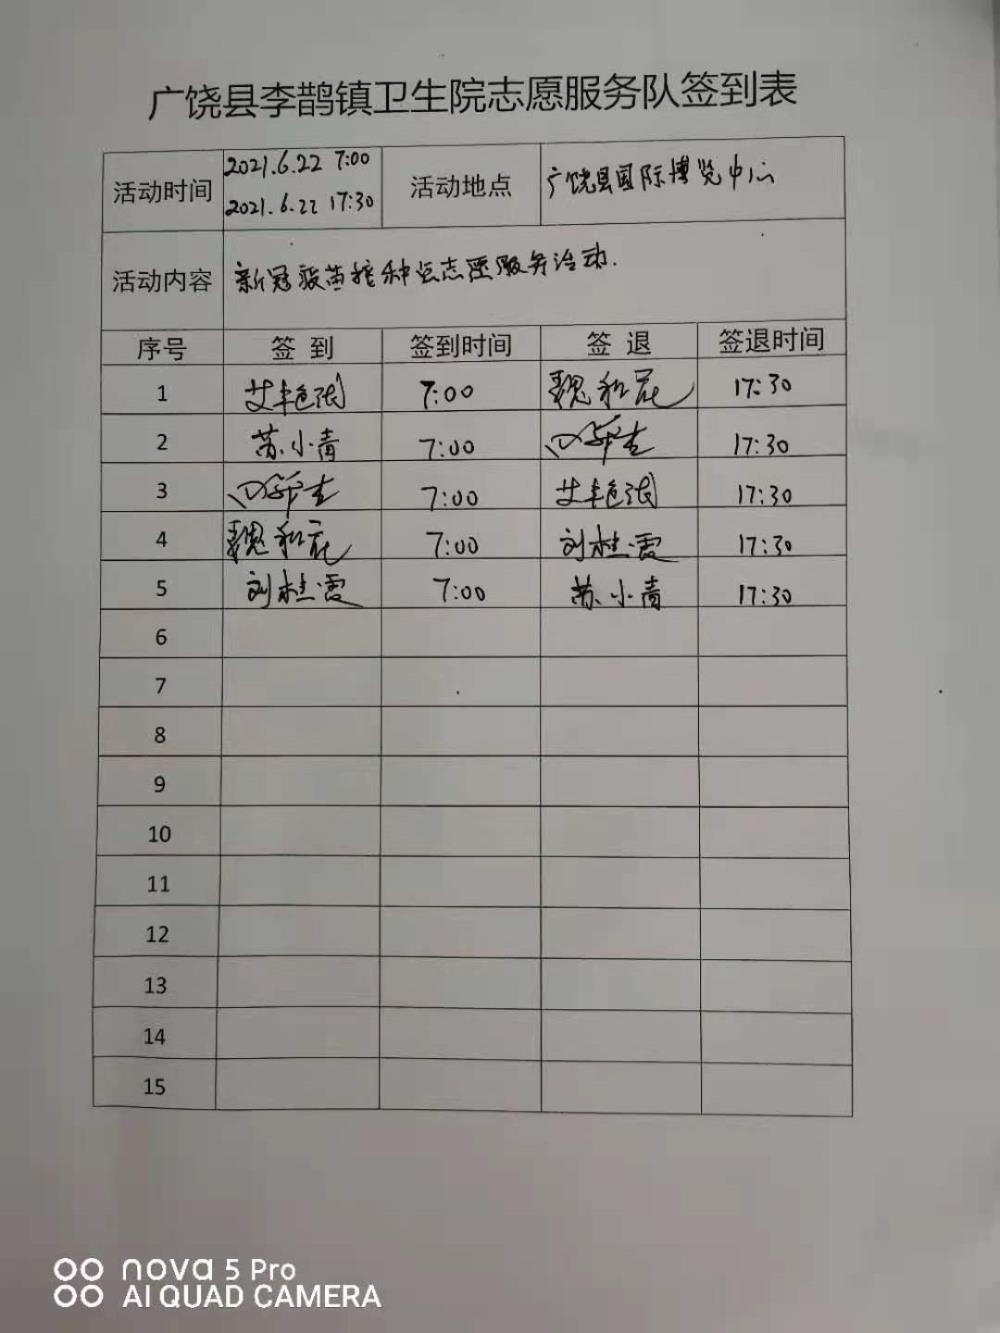 广饶县李鹊镇卫生院志愿服务队签到表
活动时间 2021.6.22 7:00 活动地点 广饶县国际博览中心
2021.6.22 17:30
活动内容 新冠疫苗接种志愿服务活动.
序号 签 到 签到时间 签 退 签退时间
1 7:00 17:30
2 苏小青 7:00 17:30
3 7:00 17:30
4 7:00 刘桂霞 17:30
5 刘桂霞 7:00 苏小青 17:30
6
7
8
9
10
11
12
13
14
15
nova 5 Pro
AI QUAD CAMERA